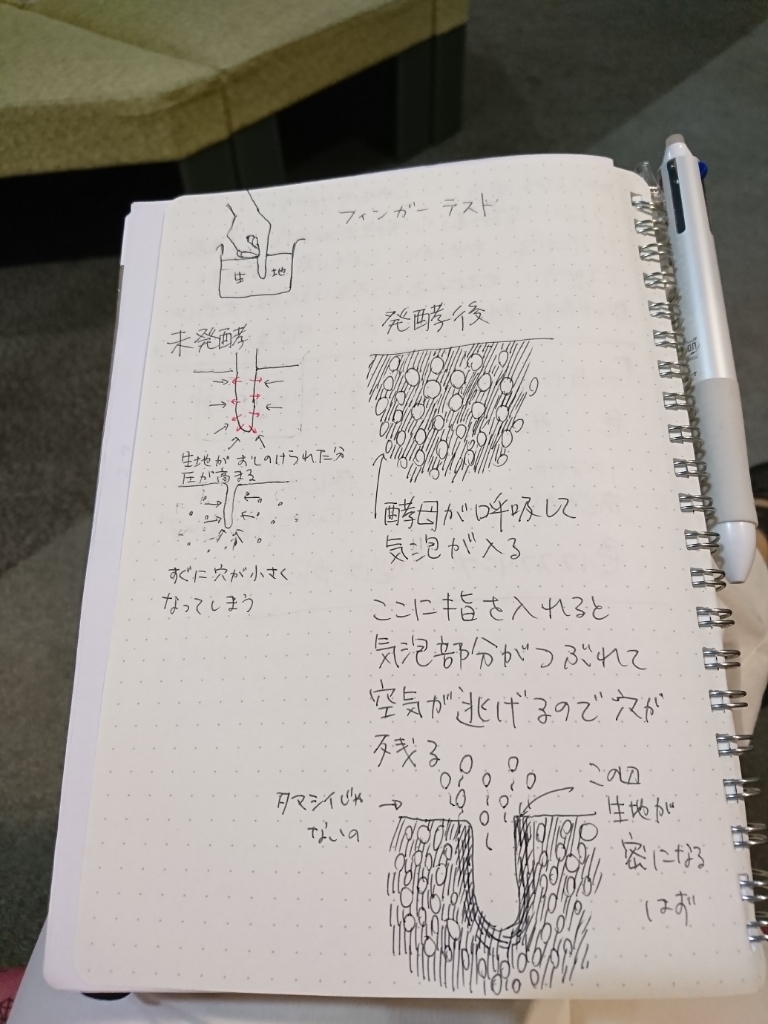 フィンガーテスト
生地
未発酵
生地がおしのけられた分
圧が高まる
すぐに穴が小さく
なってしまう
発酵後
酵母が呼吸して
気泡が入る
ここに指を入れると
気泡部分がつぶれて
空気が逃げるので穴が
残る
タマシイじゃ
ないの
この辺
生地が
密になる
はず